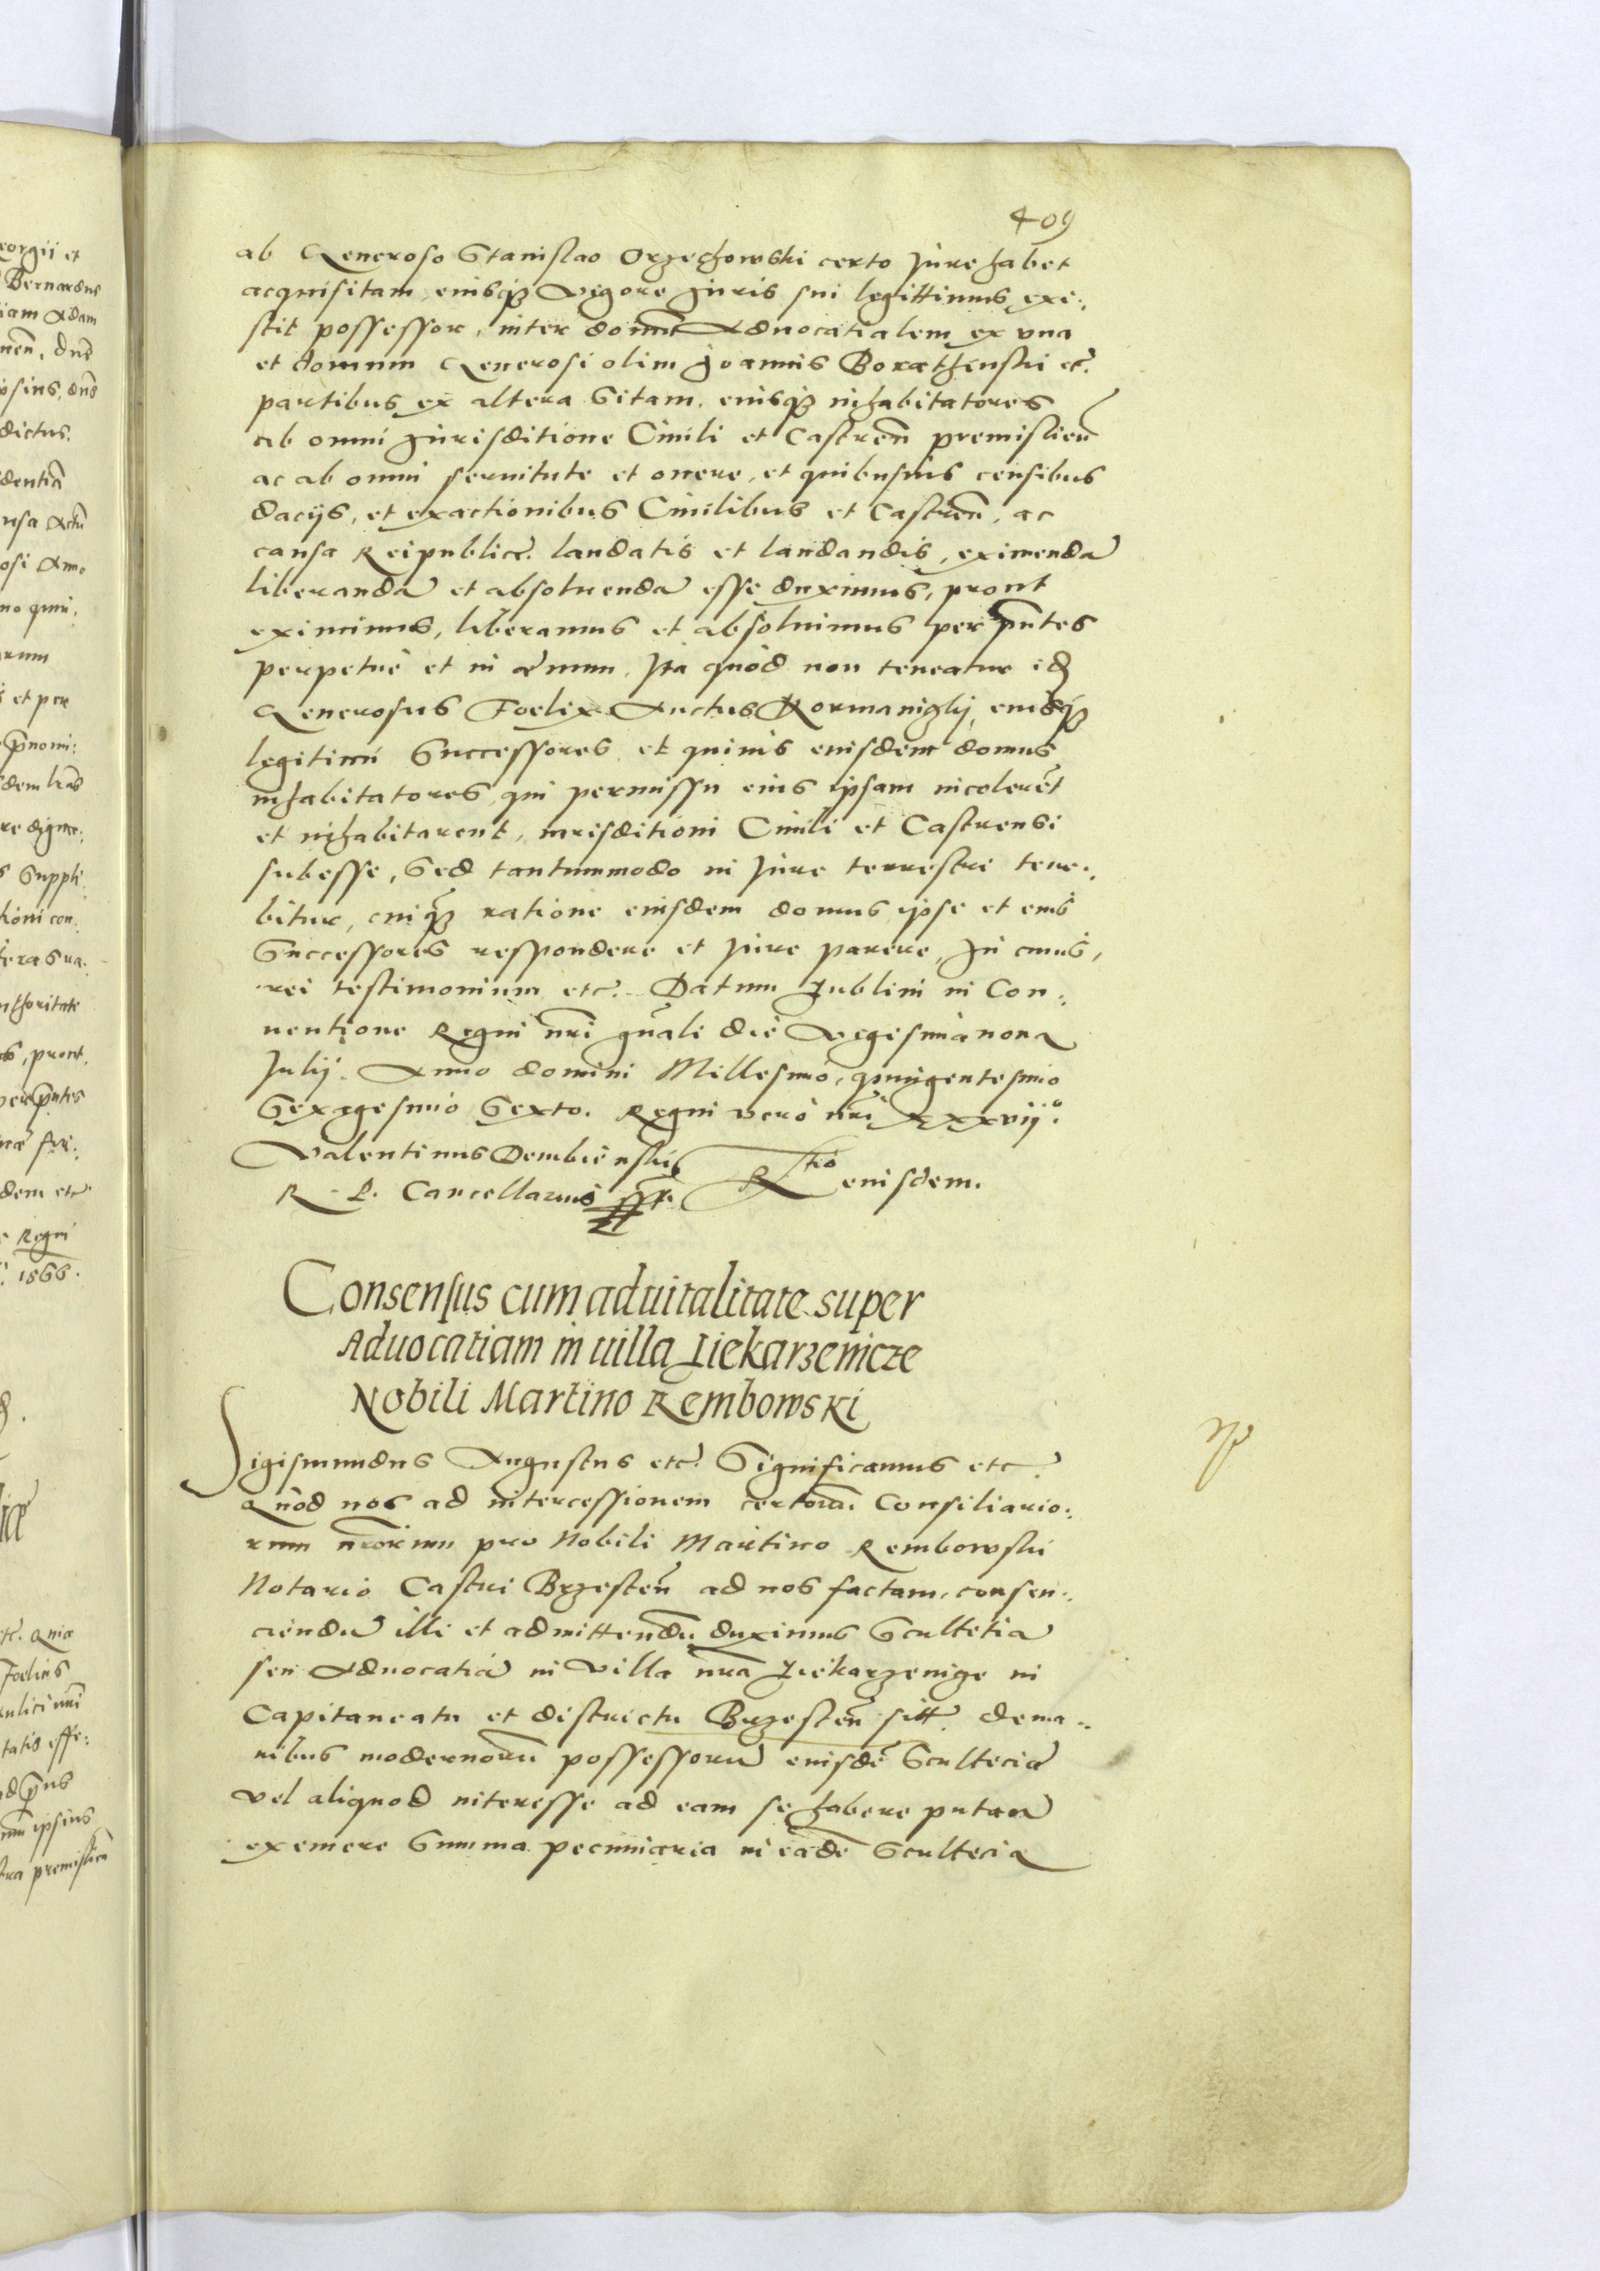 409
ab Generoso Stanislao Orzechowski certo Jure habet
acquisitam, eiusq3 vigore Juris sui legittimus exi:
stit possessor, inter domū Aduocatialem ex vna
et domum Generosi olim Joannis Borathinski etc.
partibus ex altera sitam. eiusq3 inhabitatores
ab omni Jurisditione Ciuili et Castreñ premislieñ
ac ab omni seruitute et onere, et quibusuis censibus
dacijs, et exactionibus Ciuilibus et Castreñ, ac
causa Reipublicę laudatis et laudandis, eximendā
liberandā et absoluendā esse duximus, prout
eximimus, liberamus et absoluimus per p̄ntes
perpetuè et in æuum. Ita quòd non teneatur id
Generosus Foelix Auctus Dormanighi eiusq3
legitimi Successores et quiuis eiusdem domus
inhabitatores, qui permissu eius ipsam incolerēt
et inhabitarent, iurisditioni Ciuili et Castrensi
subesse, sed tantummodo in Jure terrestre tene:
bitur, cuiq3 ratione eiusdem domus ipse et eius
Successores respondere et Jure parere, In cuius,
rei testimonium etc. Datum Lublini in Con:
uentione Regni nr̄i gn̄ali die Vigesima nona
Julij. Anno domini Millesimo, quingentesimo
Sexagesimo Sexto. Regni verò nr̄i xxxvijº.
Valentinus Dembienski
R. P. Cancellarius sst. Rtio eiusdem.
Consensus cum aduitalitate super
Aduocatiam in uilla Liekarzenicze
Nobili Martino Rembowski
Sigismundus Augustus etc. Significamus etc.
Quòd nos ad intercessionem certorū Consiliario:
rum nr̄orum pro Nobili Martino Rembowski
Notario Castri Brzesteñ ad nos factam, consen:
ciendū illi et admittendū duximus Scultetiā
seu Aduocatiā in Villa nr̄a Liekarzenize in
Capitaneatu et districtu Brzesteñ sitt̄ de ma:
nibus modernorū possessorū eiusdē Scultecia
vel aliquod interesse ad eam se habere putan
exemere Summa pecuniaria in eādē Scultecia